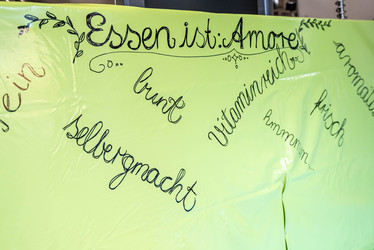 Essen ist: Amore
ein
bunt
vitaminreich
aromatis
selbergmacht
hmmmm
frisch